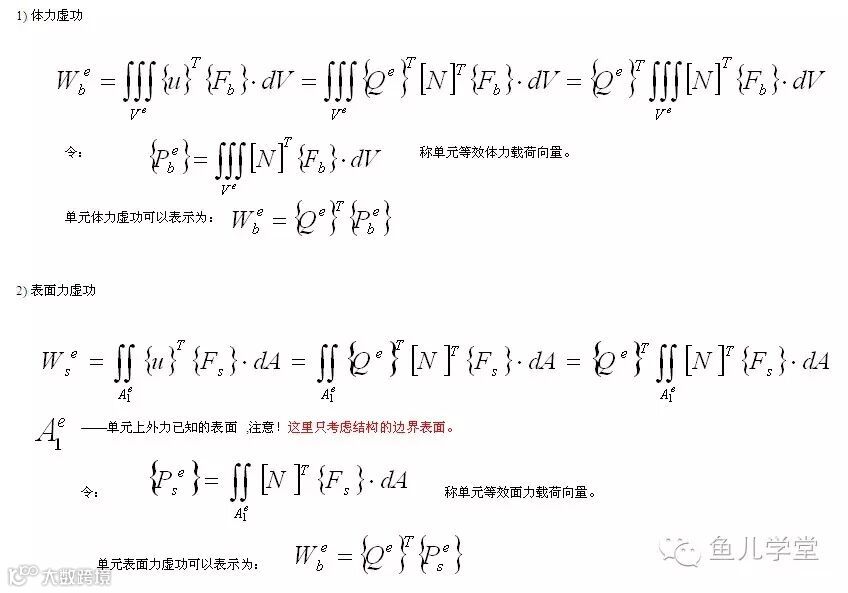 1) 体力虚功
W_b^e = ∭_{V^e} {u}^T {F_b}·dV = ∭_{V^e} {Q^e}^T [N]^T {F_b}·dV = {Q^e}^T ∭_{V^e} [N]^T {F_b}·dV
令: {P_b^e} = ∭_{V^e} [N]^T {F_b}·dV 称单元等效体力载荷向量。
单元体力虚功可以表示为: W_b^e = {Q^e}^T {P_b^e}
2) 表面力虚功
W_s^e = ∬_{A_1^e} {u}^T {F_s}·dA = ∬_{A_1^e} {Q^e}^T [N]^T {F_s}·dA = {Q^e}^T ∬_{A_1^e} [N]^T {F_s}·dA
A_1^e ——单元上外力已知的表面 ,注意!这里只考虑结构的边界表面。
令: {P_s^e} = ∬_{A_1^e} [N]^T {F_s}·dA 称单元等效面力载荷向量。
单元表面力虚功可以表示为: W_b^e = {Q^e}^T {P_s^e}
鱼儿学堂
大数跨境